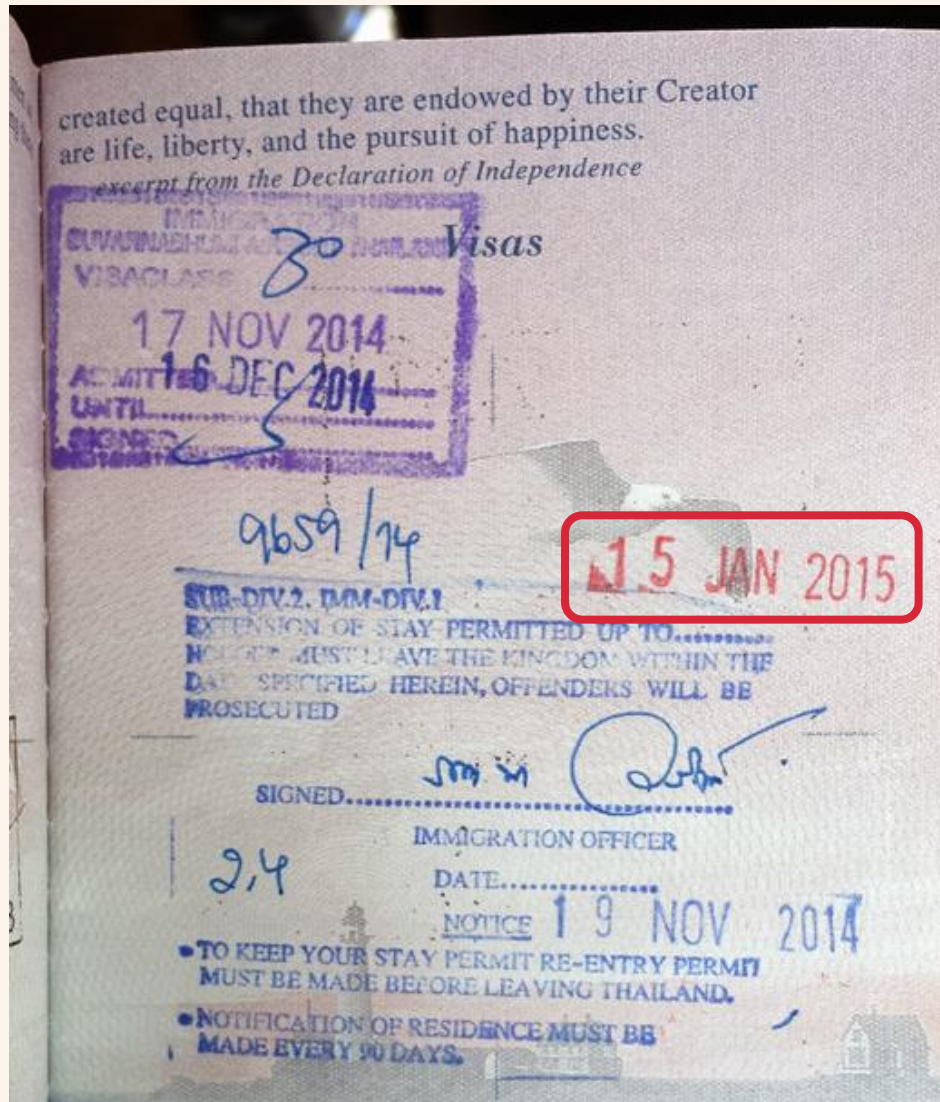 created equal, that they are endowed by their Creator
are life, liberty, and the pursuit of happiness.
excerpt from the Declaration of Independence
Visas
IMMIGRATION
SUVARNABHUMI THAILAND
VISA CLASS 30
17 NOV 2014
ADMITTED 16 DEC 2014
UNTIL
SIGNED
9659/14
15 JAN 2015
SUB-DIV.2. IMM-DIV.1
EXTENSION OF STAY PERMITTED UP TO............
HOLDER MUST LEAVE THE KINGDOM WITHIN THE
DATE SPECIFIED HEREIN, OFFENDERS WILL BE
PROSECUTED
SIGNED
IMMIGRATION OFFICER
2,4
DATE
NOTICE 19 NOV 2014
•TO KEEP YOUR STAY PERMIT RE-ENTRY PERMIT
MUST BE MADE BEFORE LEAVING THAILAND.
•NOTIFICATION OF RESIDENCE MUST BE
MADE EVERY 90 DAYS.